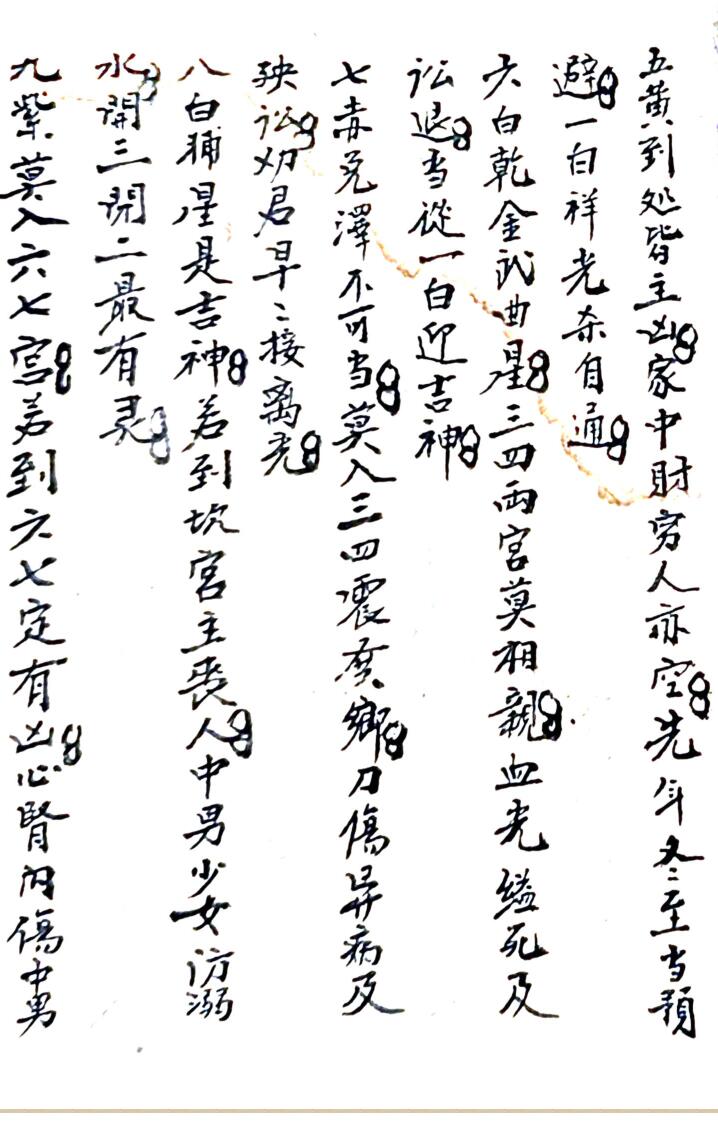 五黄到処皆主凶家中財穷人亦空先年冬至当預
避一白祥光杀自通
六白乾金武曲星三四两宫莫相親血光缢死及
讼退当從一白迎吉神
七赤兑澤不可当莫入三四震巽鄉刀傷异病及
殃讼劝君早〻接离光
八白辅星是吉神若到坎宫主丧人中男少女防溺
水開三開二最有灵
九紫莫入六七宫若到六七定有凶心腎内傷中男